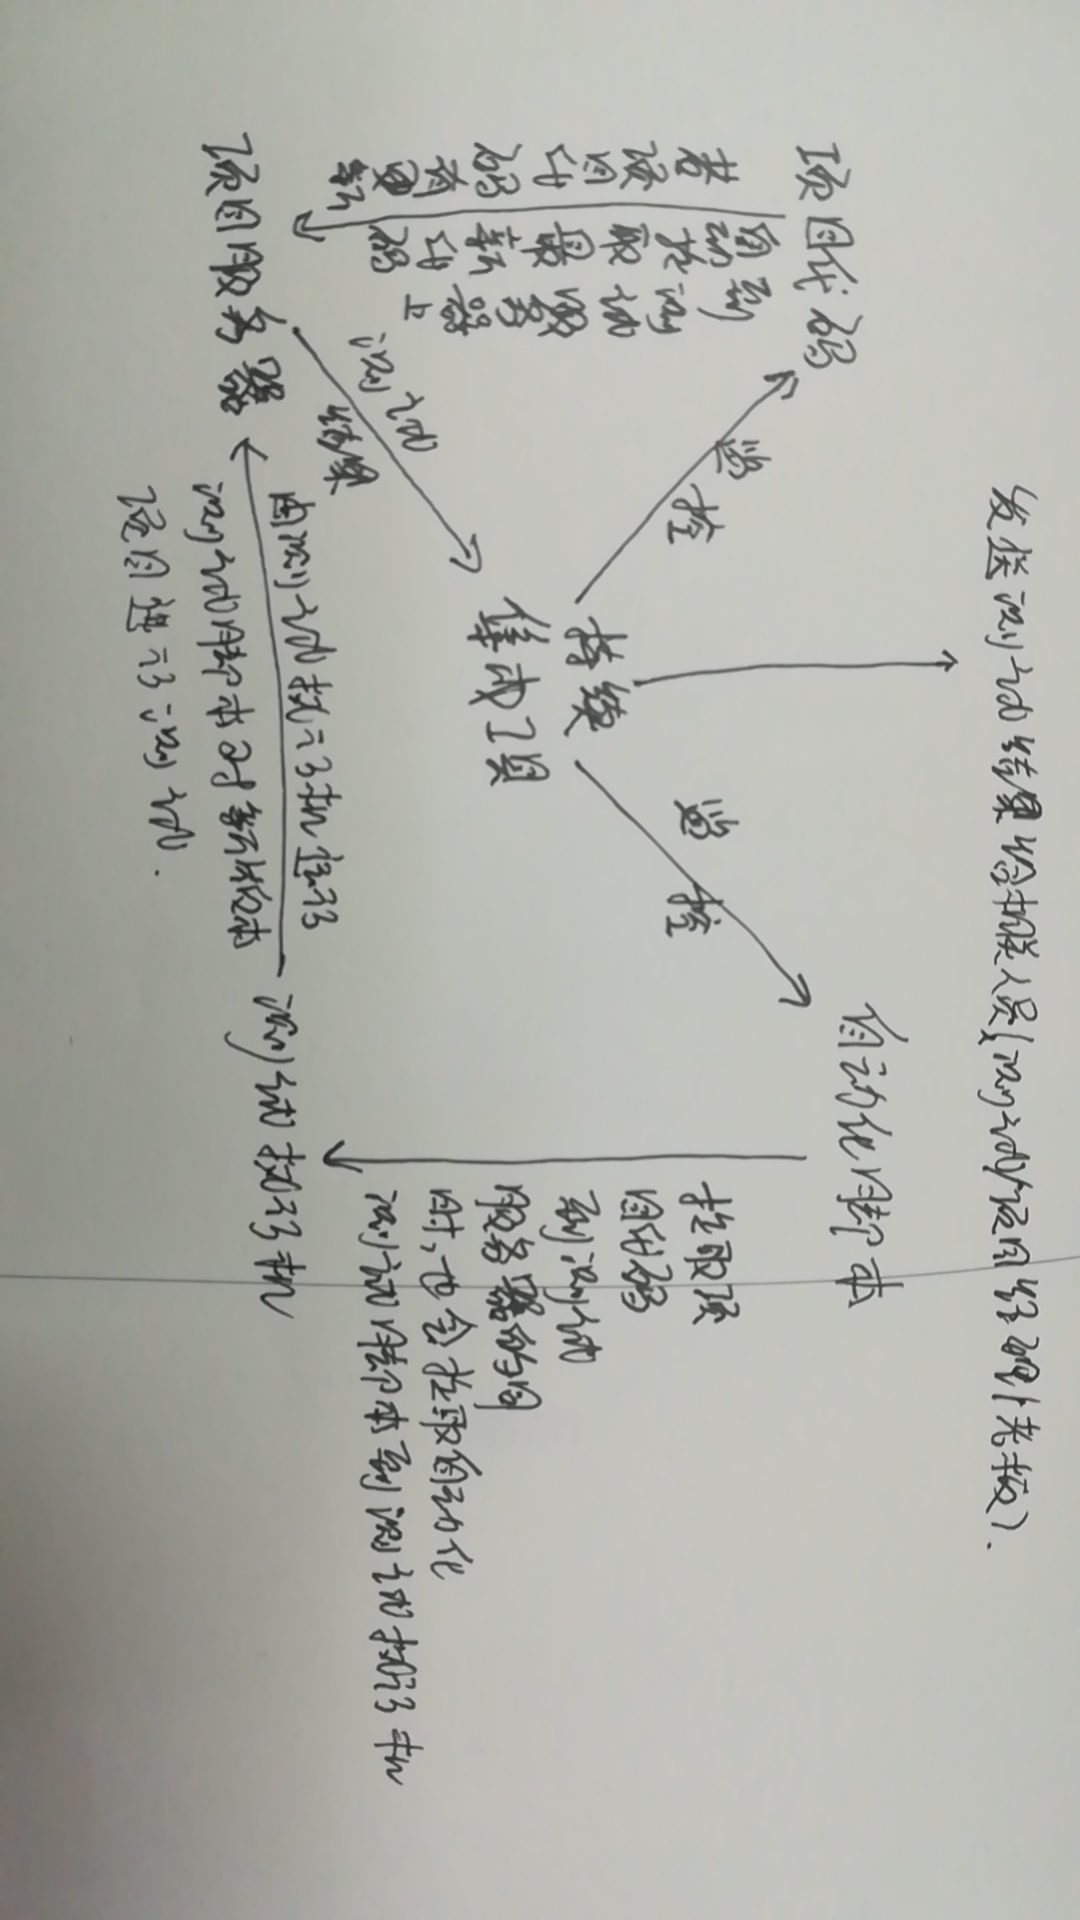 发送测试结果给相关人员(测试/项目经理/老板).
自动化脚本
项目代码
监控
监控
若项目代码有更新
自动拉取最新代码
到测试服务器上
拉取项
目代码
到测试
服务器的同
时,也会拉取自动化
测试脚本到测试执行机
持续
集成工具
测试
结果
由测试执行机运行
测试脚本对新版本
项目进行测试.
项目服务器
测试执行机